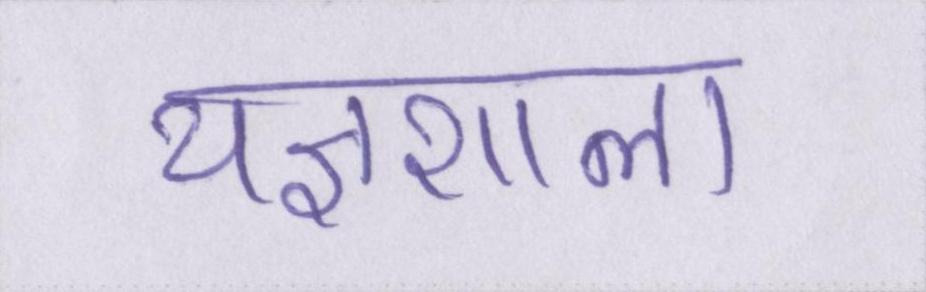 यज्ञशाला